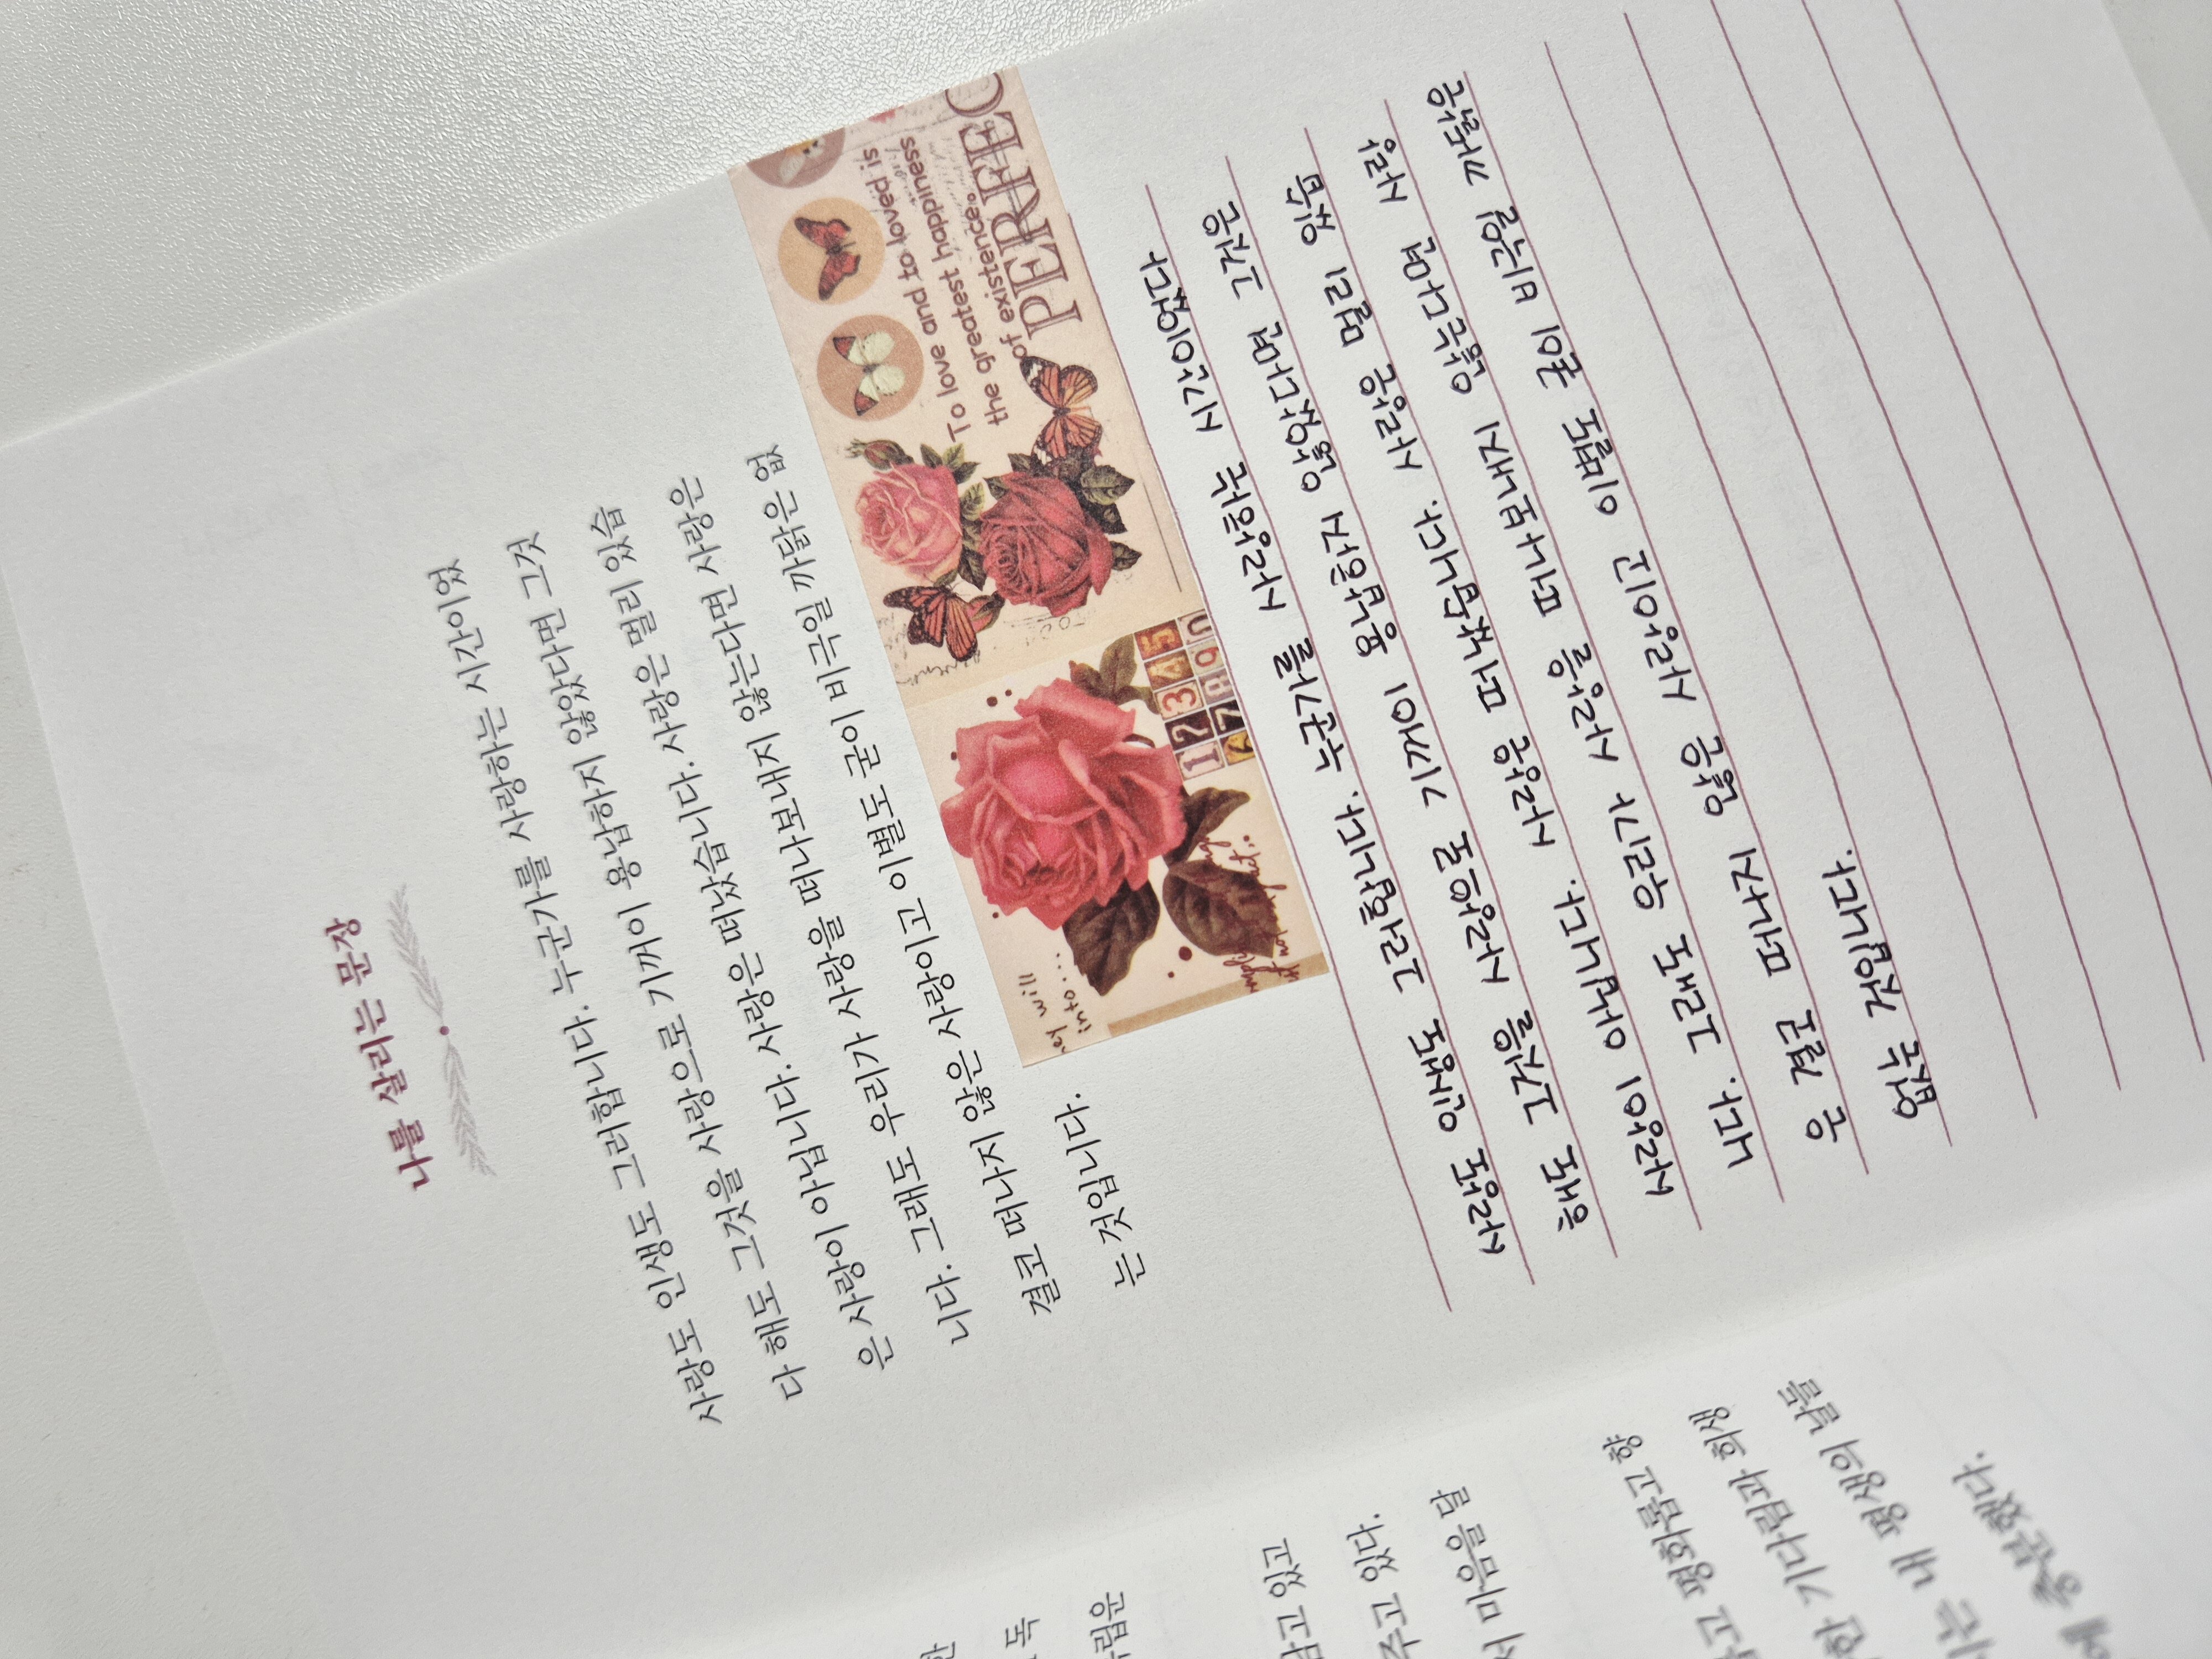 나를 살리는 문장
사랑도 인생도 그러합니다. 누군가를 사랑하는 시간이었
다 해도 그것을 사랑으로 기꺼이 용납하지 않았다면 그것
은 사랑이 아닙니다. 사랑은 떠났습니다. 사랑은 멀리 있습
니다. 그래도 우리가 사랑을 떠나보내지 않는다면 사랑은
결코 떠나지 않은 사랑이고 이별도 굳이 비극일 까닭은 없
는 것입니다.
ney will
into....
1 2 3 4 5
6 7 8 9 0
To love and to loved is
the greatest happiness
of existence.
PERFEC
사랑도 인생도 그러합니다. 누군가를 사랑하는 시간이었다
해도 그것을 사랑으로 기꺼이 용납하지 않았다면 그것은
사랑이 아닙니다. 사랑은 떠났습니다. 사랑은 멀리 있습
니다. 그래도 우리가 사랑을 떠나보내지 않는다면 사랑
은 결코 떠나지 않은 사랑이고 이별도 굳이 비극일 까닭은
없는 것입니다.
한
독
그립운
담고 있고
주고 있다.
서 마음을 달
고 평화롭고 향
한 기다림과 희생
는 내 평생의 날들
에 충분했다.